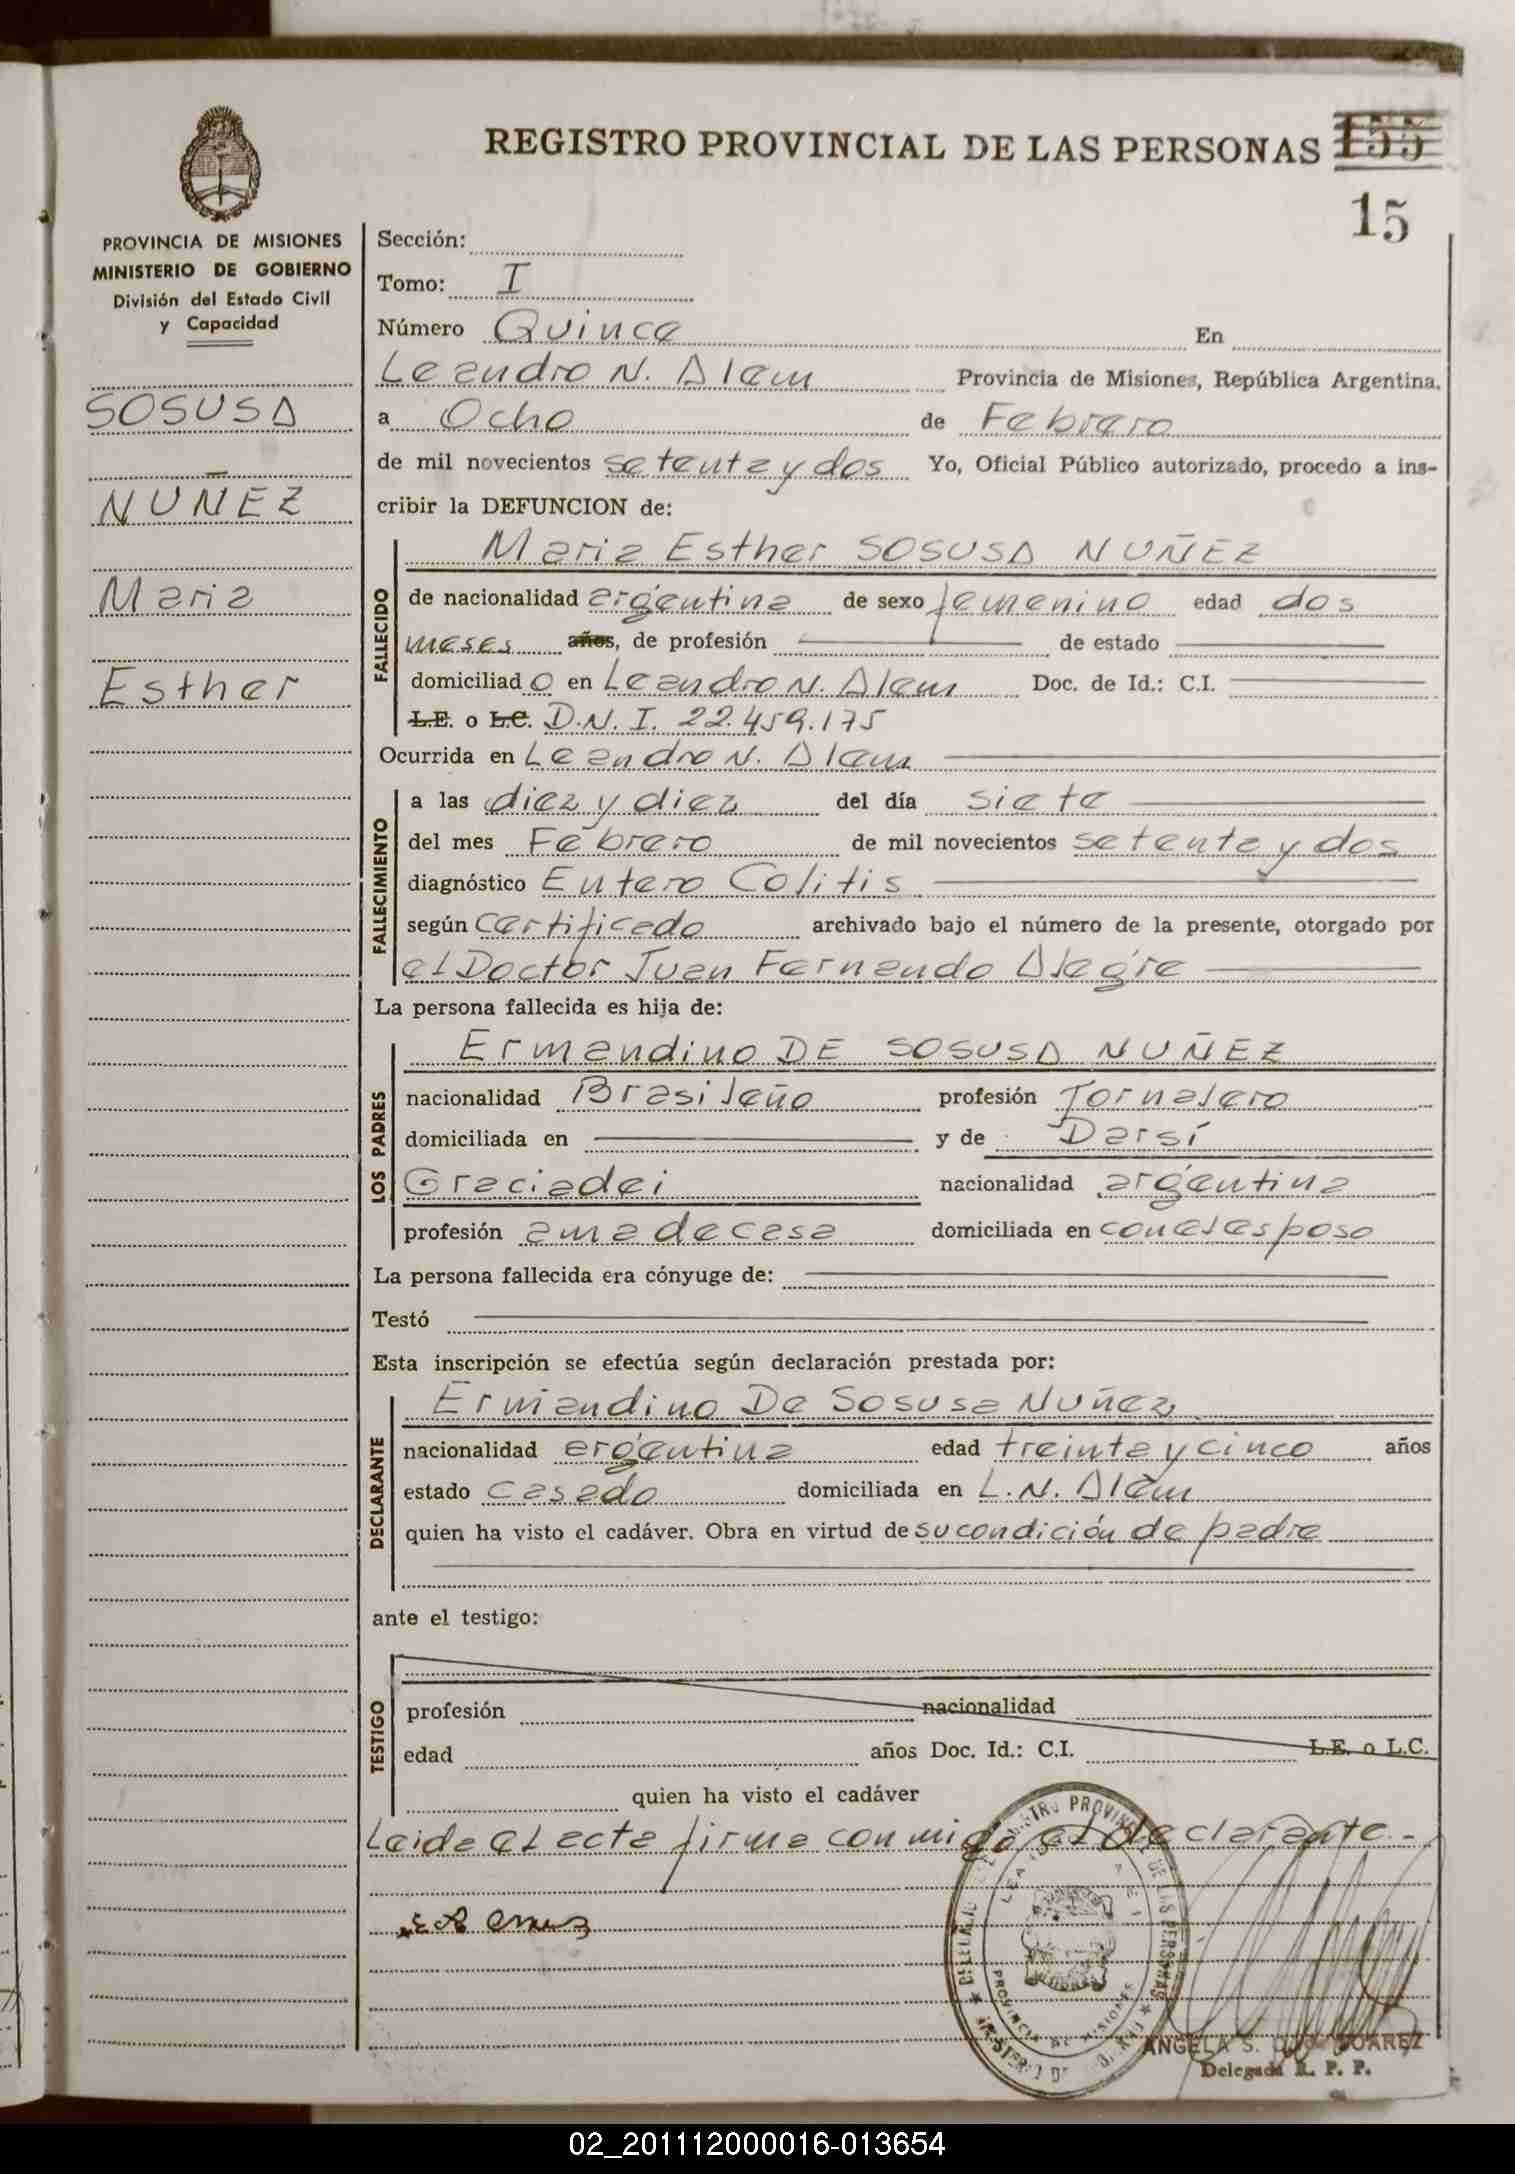 REGISTRO PROVINCIAL DE LAS PERSONAS 155
15
PROVINCIA DE MISIONES
MINISTERIO DE GOBIERNO
División del Estado Civil
y Capacidad
SOSUSA
NUÑEZ
Maria
Esther
Sección:
Tomo: I
Número Quince En
Leandro N. Alem Provincia de Misiones, República Argentina.
a Ocho de Febrero
de mil novecientos setenta y dos Yo, Oficial Público autorizado, procedo a ins-
cribir la DEFUNCION de:
FALLECIDO
Maria Esther SOSUSA NUÑEZ
de nacionalidad argentina de sexo femenino edad dos
meses años, de profesión de estado
domiciliado en Leandro N. Alem Doc. de Id.: C.I.
L.E. o L.C. D.N.I. 22.459.175
Ocurrida en Leandro N. Alem
FALLECIMIENTO
a las diez y diez del día siete
del mes Febrero de mil novecientos setenta y dos
diagnóstico Entero Colitis
según certificado archivado bajo el número de la presente, otorgado por
el Doctor Juan Fernando Alegre
La persona fallecida es hija de:
LOS PADRES
Ermandino DE SOSUSA NUÑEZ
nacionalidad Brasileño profesión Jornalero
domiciliada en y de Darsí
Graciadei nacionalidad argentina
profesión ama de casa domiciliada en con el esposo
La persona fallecida era cónyuge de:
Testó
Esta inscripción se efectúa según declaración prestada por:
DECLARANTE
Ermandino De Sosusa Nuñez
nacionalidad argentina edad treinta y cinco años
estado casado domiciliada en L.N. Alem
quien ha visto el cadáver. Obra en virtud de su condición de padre
ante el testigo:
TESTIGO
profesión nacionalidad
edad años Doc. Id.: C.I. L.E. o L.C.
quien ha visto el cadáver
Leida el acta firma conmigo el declarante.-
PROVINCIA DE MISIONES
ANGELA S.
Delegada R. P. P.
02_201112000016-013654